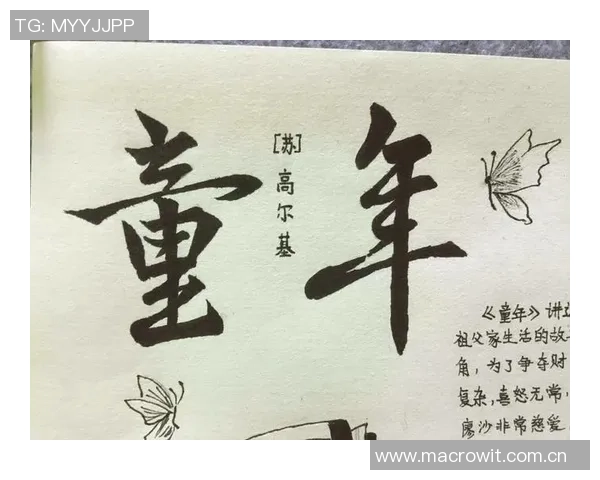 TG: MYYJJPP
童年
[苏]高尔基
《童年》讲述
祖父家生活的故
角，为了争夺财
复杂，喜怒无常，
廖沙非常慈爱
www.macrowit.com.cn